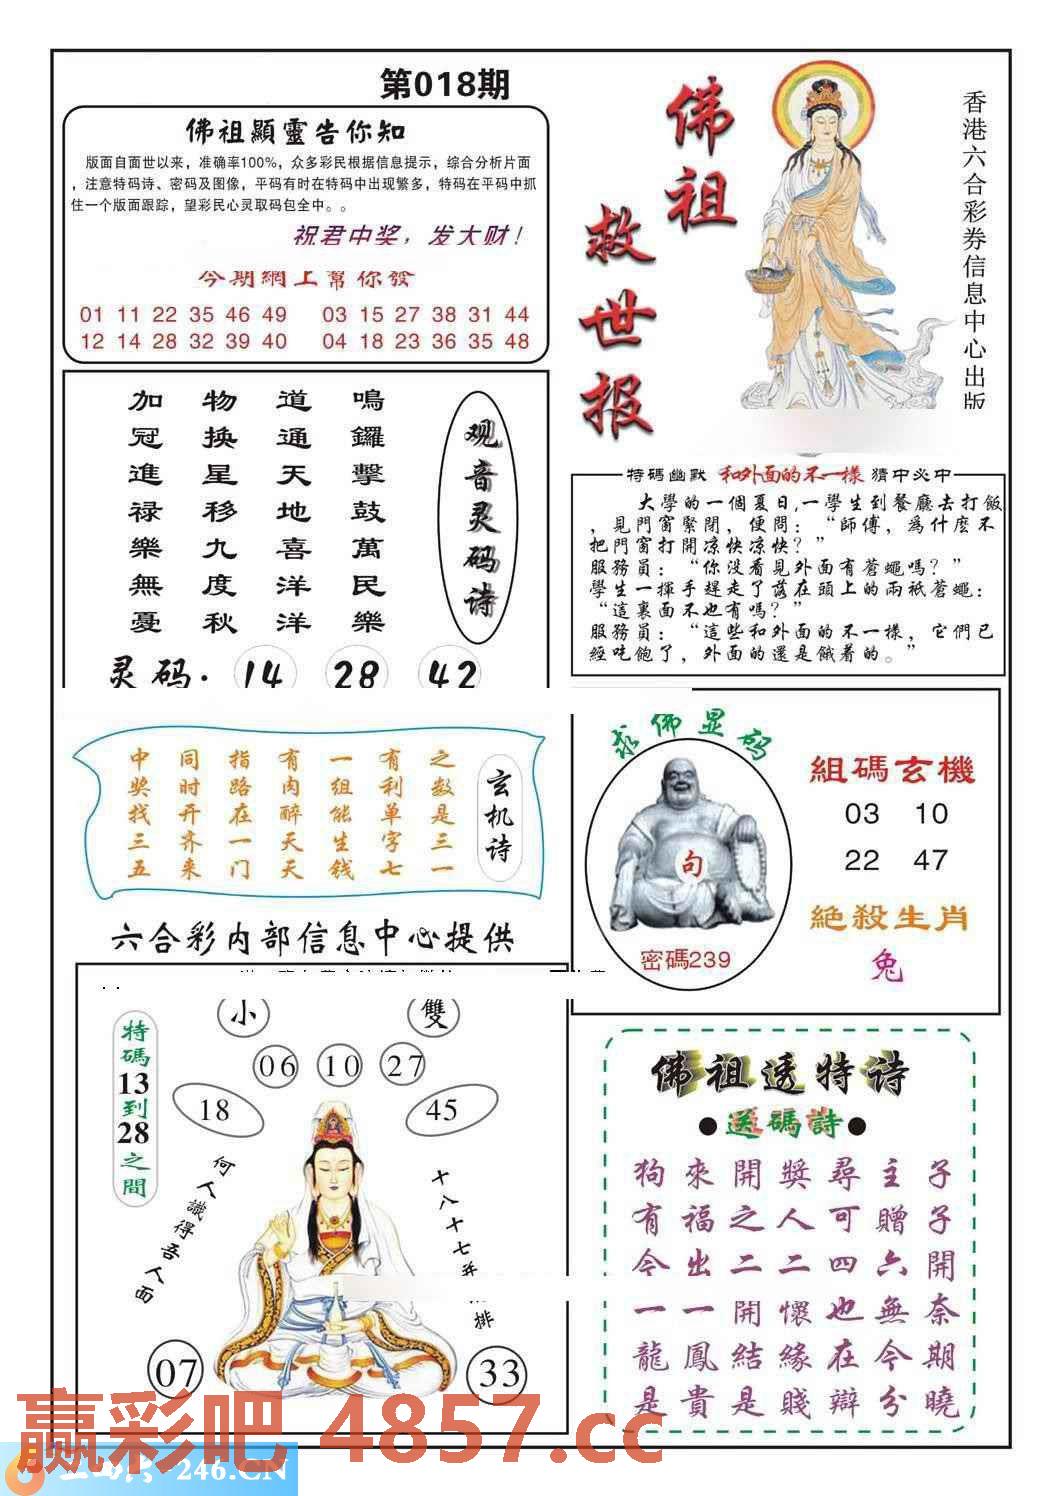 第018期
佛祖顯靈告你知
版面自面世以来，准确率100%，众多彩民根据信息提示，综合分析片面
，注意特码诗、密码及图像，平码有时在特码中出现繁多，特码在平码中抓
住一个版面跟踪，望彩民心灵取码包全中。。
祝君中奖，发大财！
今期網上幫你發
01 11 22 35 46 49 03 15 27 38 31 44
12 14 28 32 39 40 04 18 23 36 35 48
佛祖
救世报
香港六合彩券信息中心出版
观音灵码诗
鳴鑼擊鼓萬民樂
道通天地喜洋洋
物换星移九度秋
加冠進禄樂無憂
灵码. 14 28 42
特碼幽默 和外面的不一樣 猜中必中
大學的一個夏日,一學生到餐廳去打飯
，見門窗緊閉，便問：“師傅，爲什麽不
把門窗打開凉快凉快？”
服務員：“你没看見外面有蒼蠅嗎？”
學生一揮手趕走了落在頭上的兩衹蒼蠅：
“這裏面不也有嗎？”
服務員：“這些和外面的不一樣，它們已
經吃飽了，外面的還是餓着的。”
玄机诗
之数是三一
有利单字七
一组能生钱
有肉醉天天
指路在一门
同时开齐来
中奖找三五
六合彩内部信息中心提供
求佛显码
句
密碼239
組碼玄機
03 10
22 47
絶殺生肖
兔
小 雙
06 10 27
18 45
特碼13到28之間
何人識得吾人面
十八十七并排
07 33
佛祖透特诗
●送碼詩●
狗來開獎尋主子
有福之人可贈子
今出二二四六開
一一開懷也無奈
龍鳳結緣在今期
是貴是賤辯分曉
赢彩吧 4857.cc
246.CN